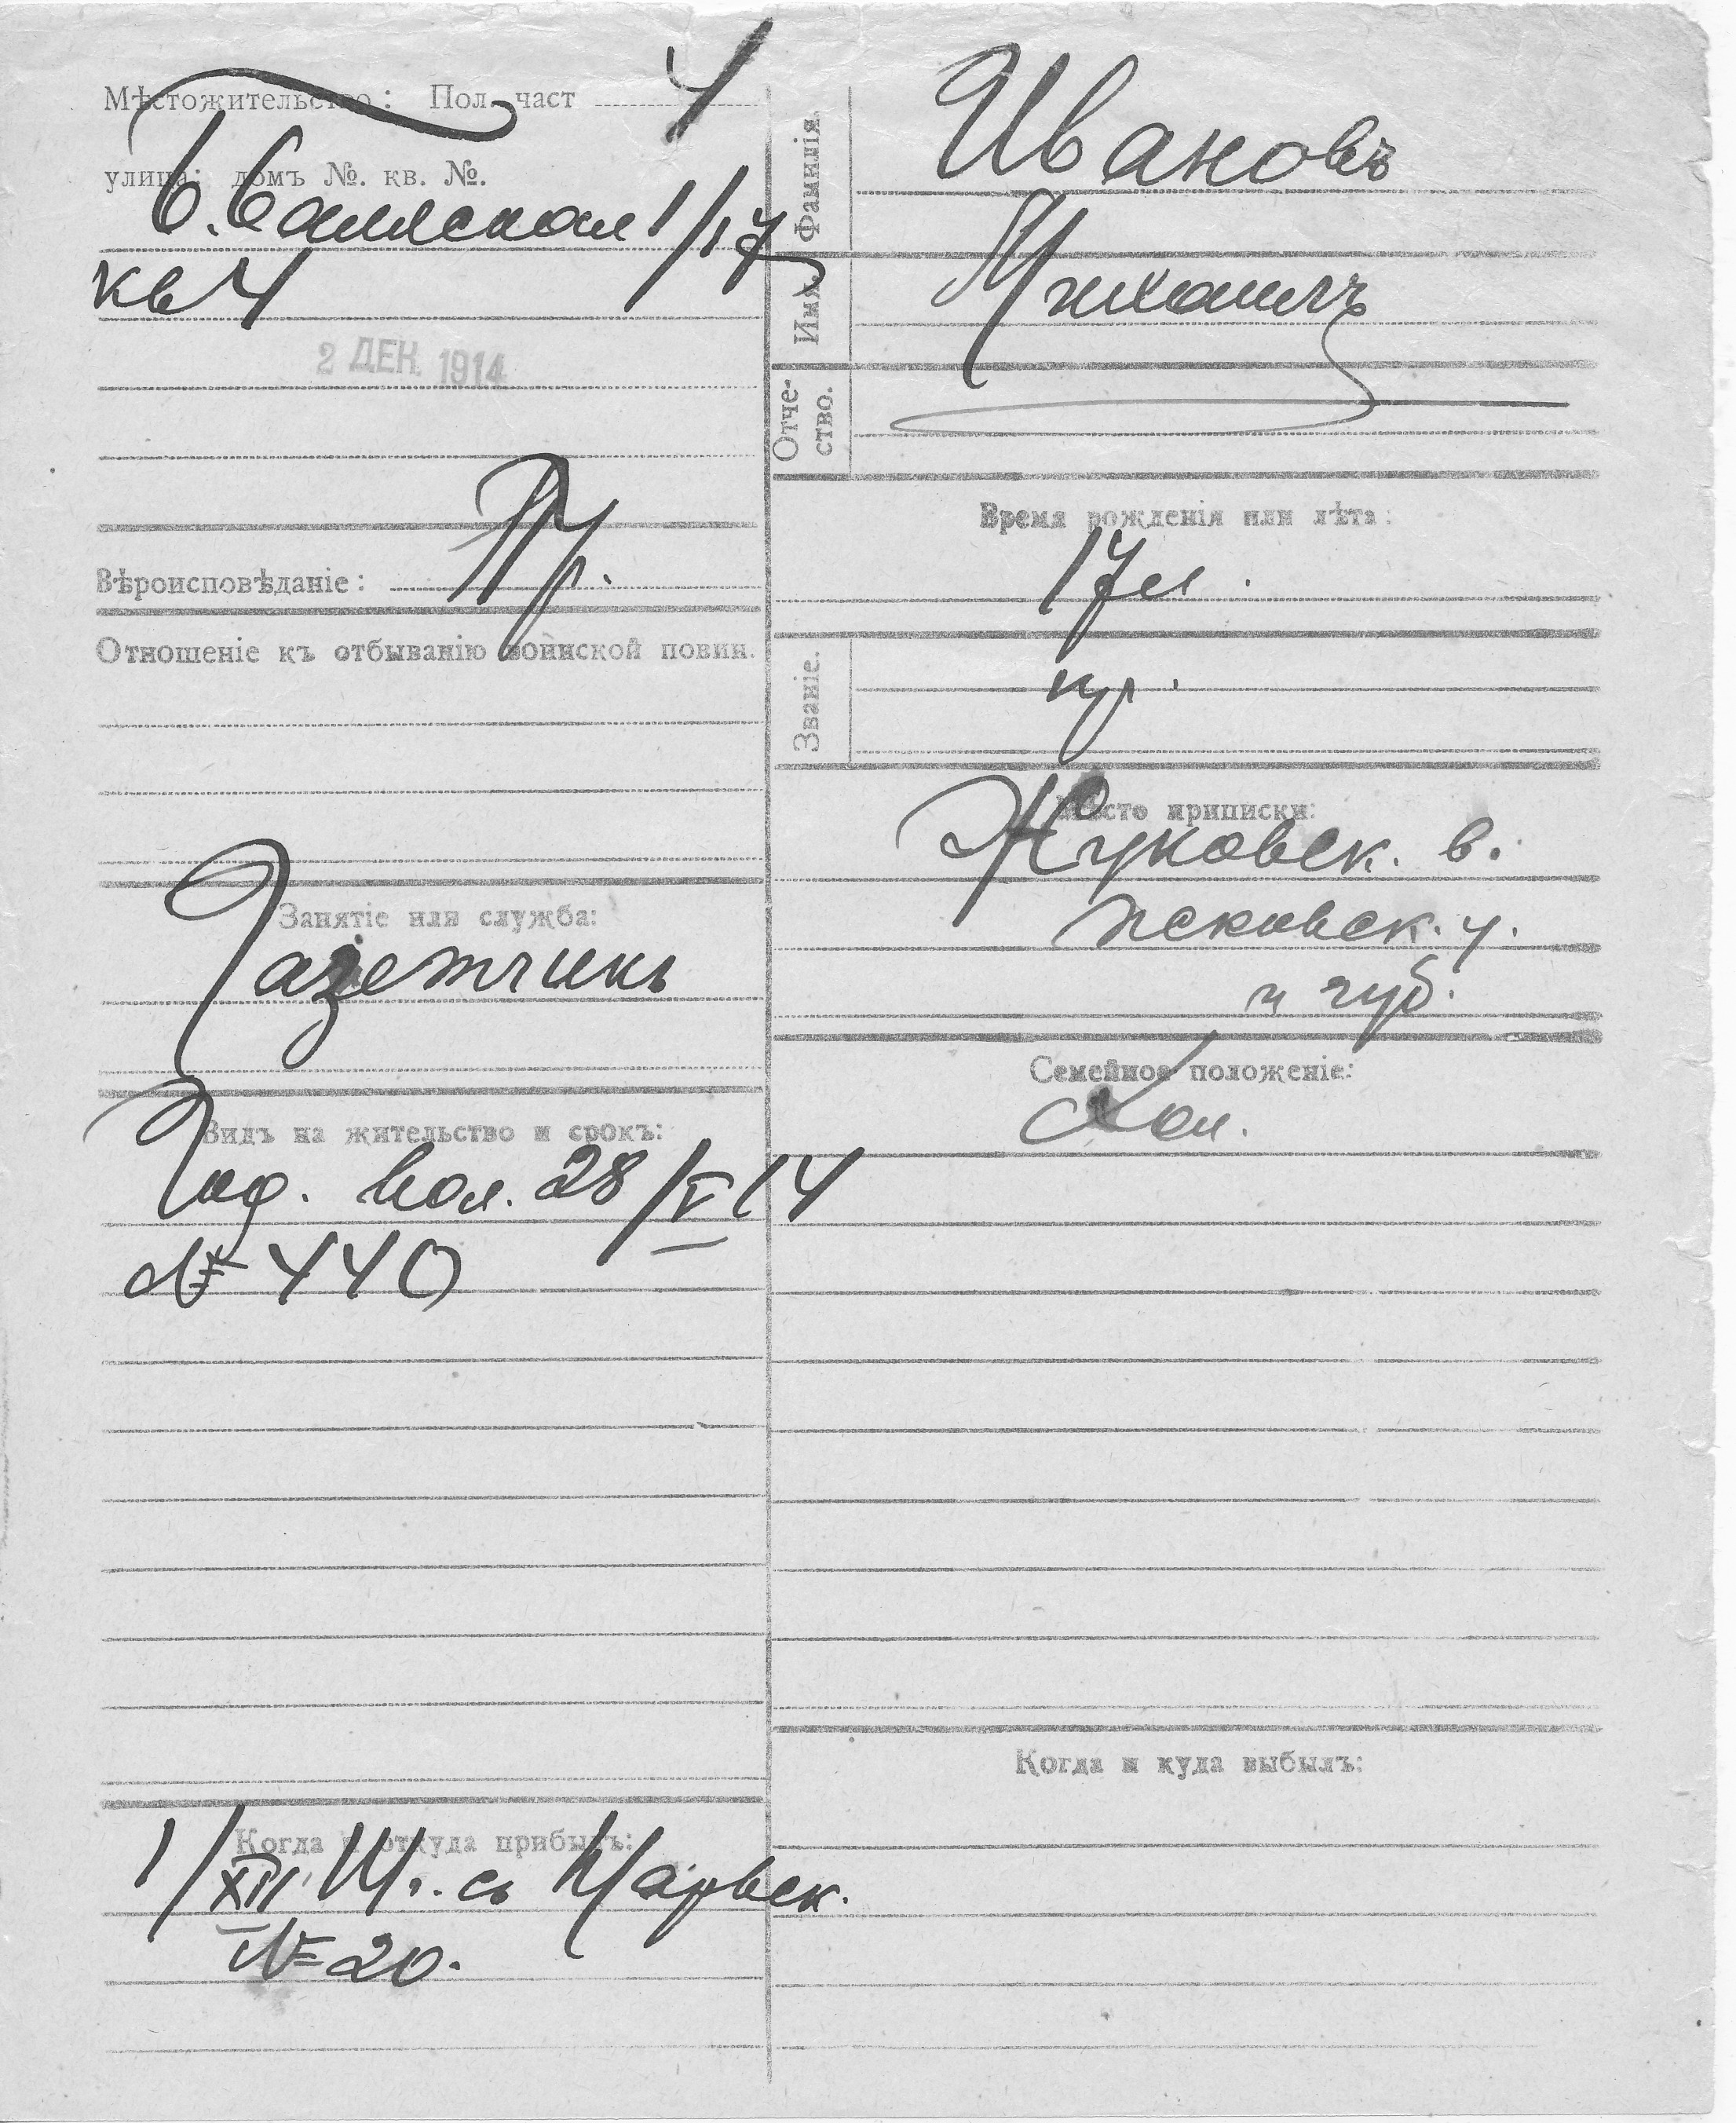 Мѣстожительство: Пол. част 4
улица: домъ №. кв. №.
Б. 1/17
кв 4
2 ДЕК. 1914
Вѣроисповѣданіе: Пр.
Отношеніе къ отбыванію воинской повин.
Занятіе или служба:
Газетчикъ
Видъ на жительство и срокъ:
Год. вол. 28/V 14
№ 440
Когда и откуда прибылъ:
1/XII 14 г. съ Нарвск.
№ 20.
Фамилія
Ивановъ
Имя
Михаилъ
Отче-
ство.
Время рожденія или лѣта:
17 л.
Званіе.
кр.
Мѣсто приписки:
Жуковск. в.
Псковск. у.
и губ.
Семейное положеніе:
Хол.
Когда и куда выбылъ: